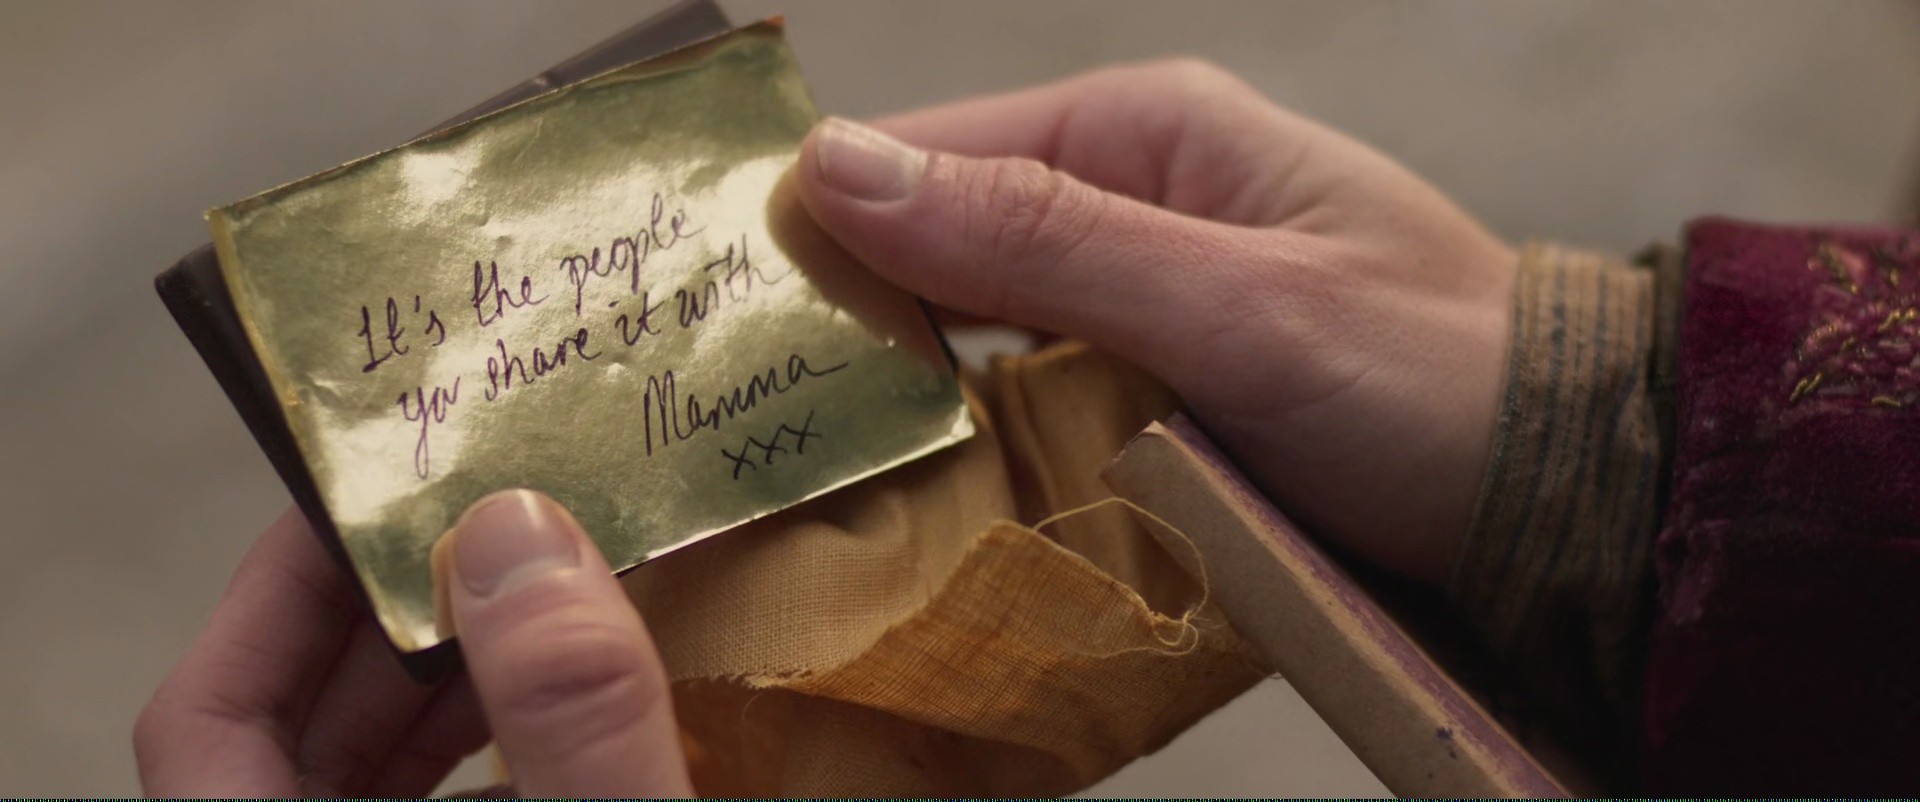 It's the people
you share it with
Mamma
xxx